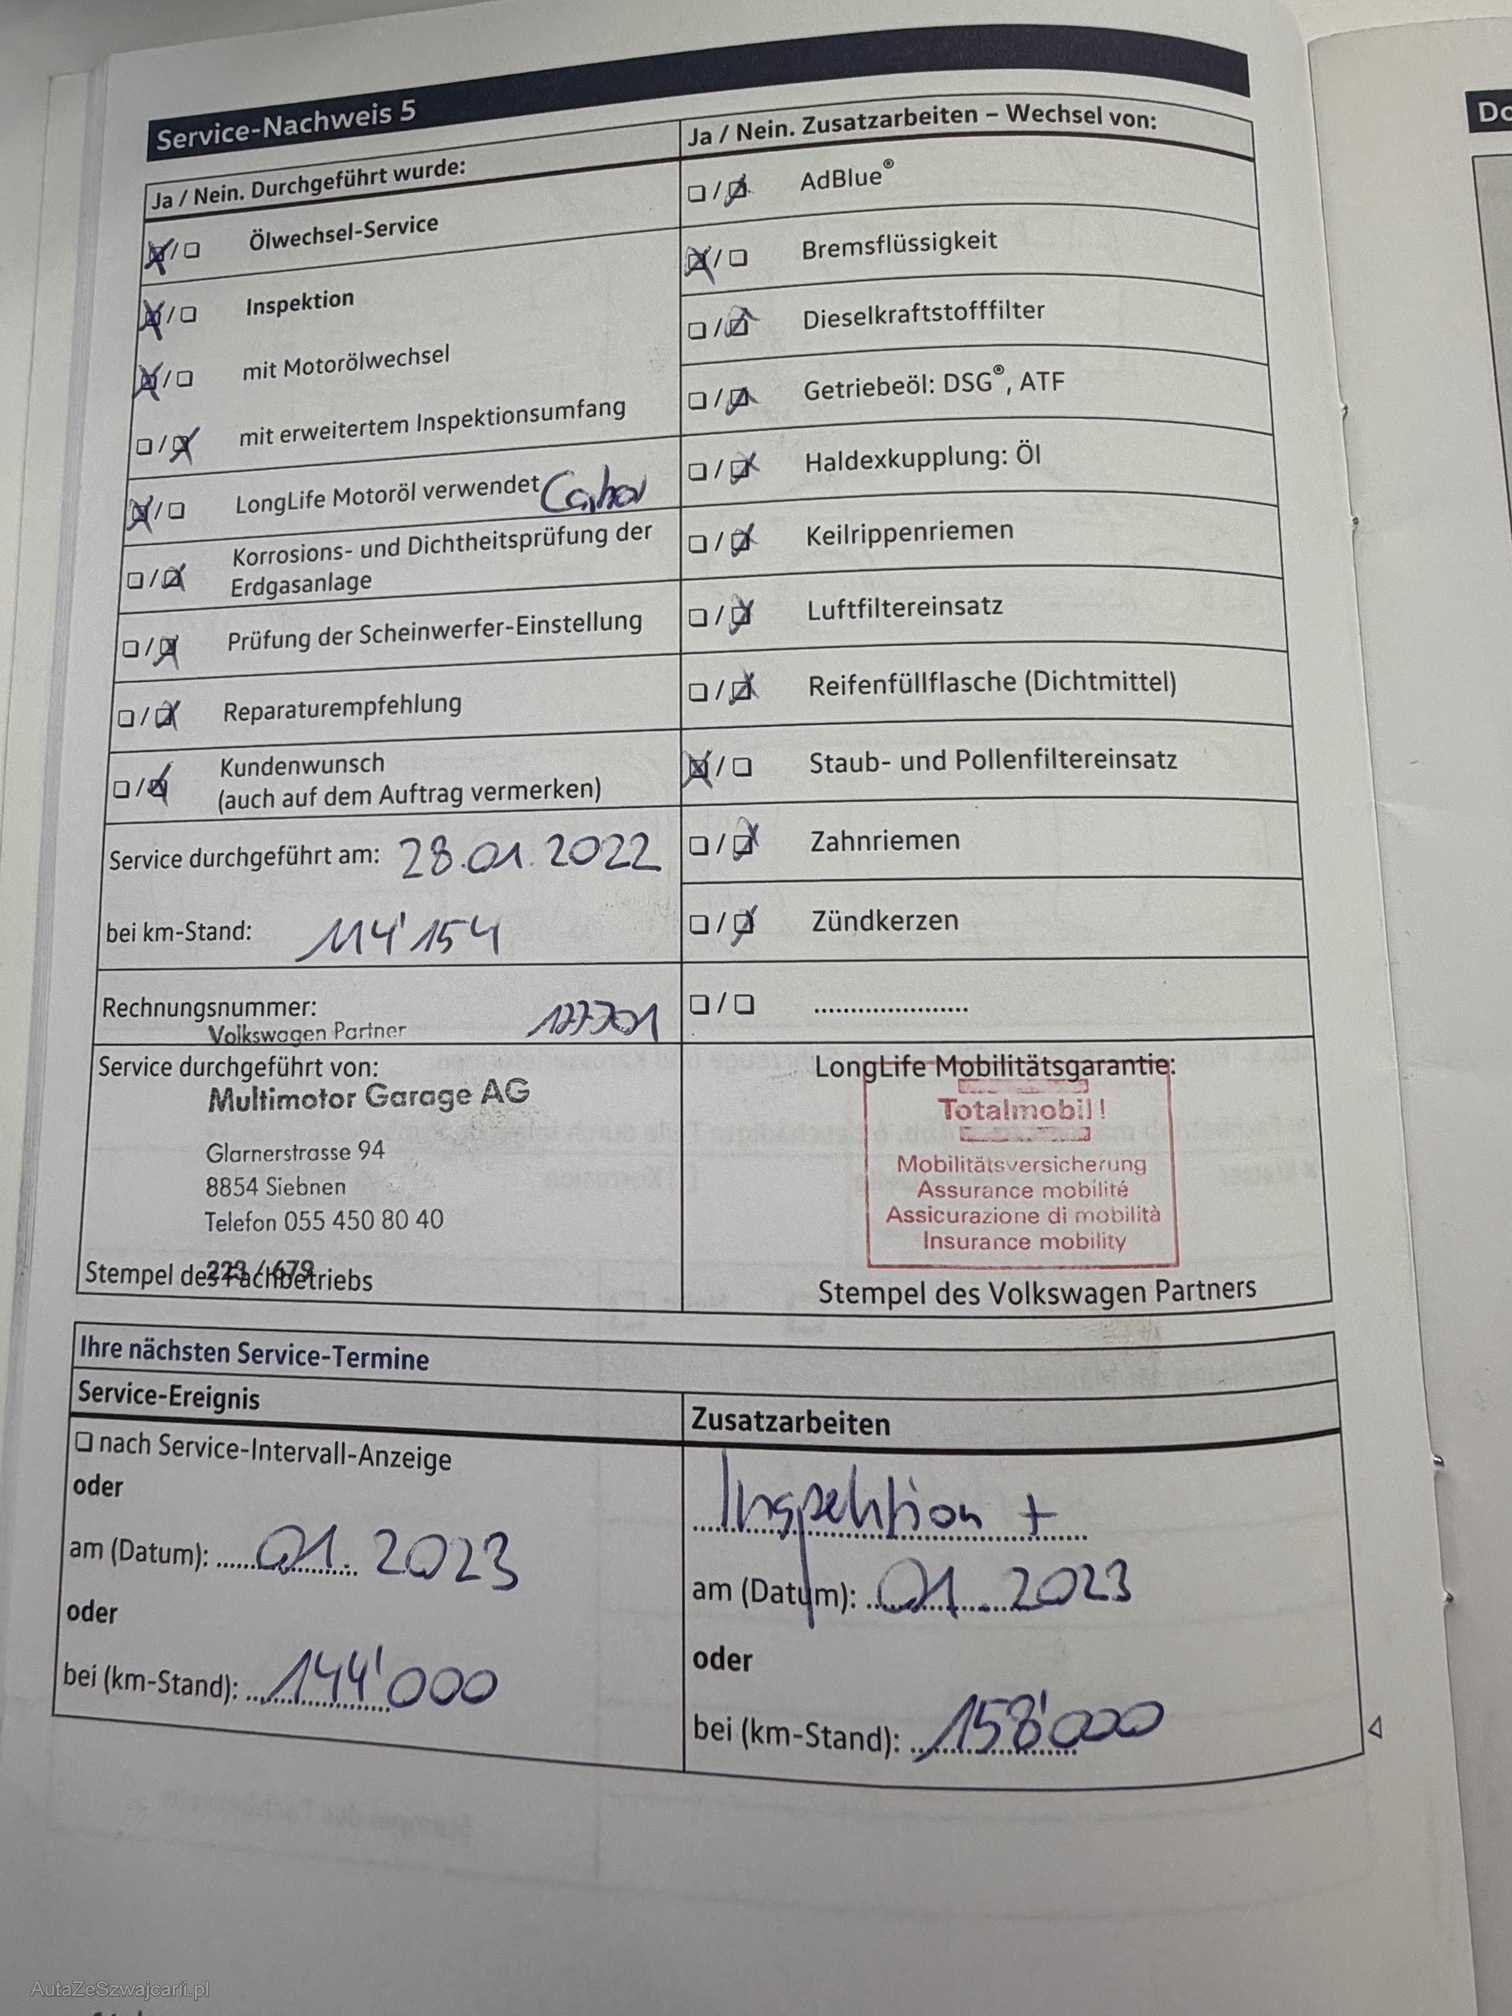 Service-Nachweis 5
Do
Ja / Nein. Durchgeführt wurde:
☒/☐ Ölwechsel-Service
☒/☐ Inspektion
☒/☐ mit Motorölwechsel
☐/☒ mit erweitertem Inspektionsumfang
☒/☐ LongLife Motoröl verwendet
☐/☒ Korrosions- und Dichtheitsprüfung der
Erdgasanlage
☐/☒ Prüfung der Scheinwerfer-Einstellung
☐/☒ Reparaturempfehlung
☐/☒ Kundenwunsch
(auch auf dem Auftrag vermerken)
Service durchgeführt am: 28.01.2022
bei km-Stand: 114'154
Rechnungsnummer: 127701
Volkswagen Partner
Service durchgeführt von:
Multimotor Garage AG
Glarnerstrasse 94
8854 Siebnen
Telefon 055 450 80 40
223 / 679
Stempel des Fachbetriebs
Ja / Nein. Zusatzarbeiten – Wechsel von:
☐/☒ AdBlue®
☒/☐ Bremsflüssigkeit
☐/☒ Dieselkraftstofffilter
☐/☒ Getriebeöl: DSG®, ATF
☐/☒ Haldexkupplung: Öl
☐/☒ Keilrippenriemen
☐/☒ Luftfiltereinsatz
☐/☒ Reifenfüllflasche (Dichtmittel)
☒/☐ Staub- und Pollenfiltereinsatz
☐/☒ Zahnriemen
☐/☒ Zündkerzen
☐/☐ ....................
LongLife Mobilitätsgarantie:
Totalmobil!
Mobilitätsversicherung
Assurance mobilité
Assicurazione di mobilità
Insurance mobility
Stempel des Volkswagen Partners
Ihre nächsten Service-Termine
Service-Ereignis
☐ nach Service-Intervall-Anzeige
oder
am (Datum): 01. 2023
oder
bei (km-Stand): 144'000
Zusatzarbeiten
Inspektion +
am (Datum): 01 2023
oder
bei (km-Stand): 158'000
AutaZeSzwajcarii.pl